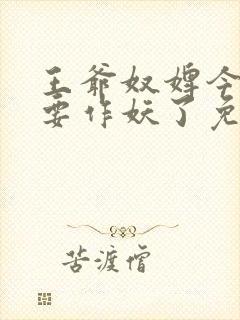 王爷奴婢今
要作妖了免
苦渡僧